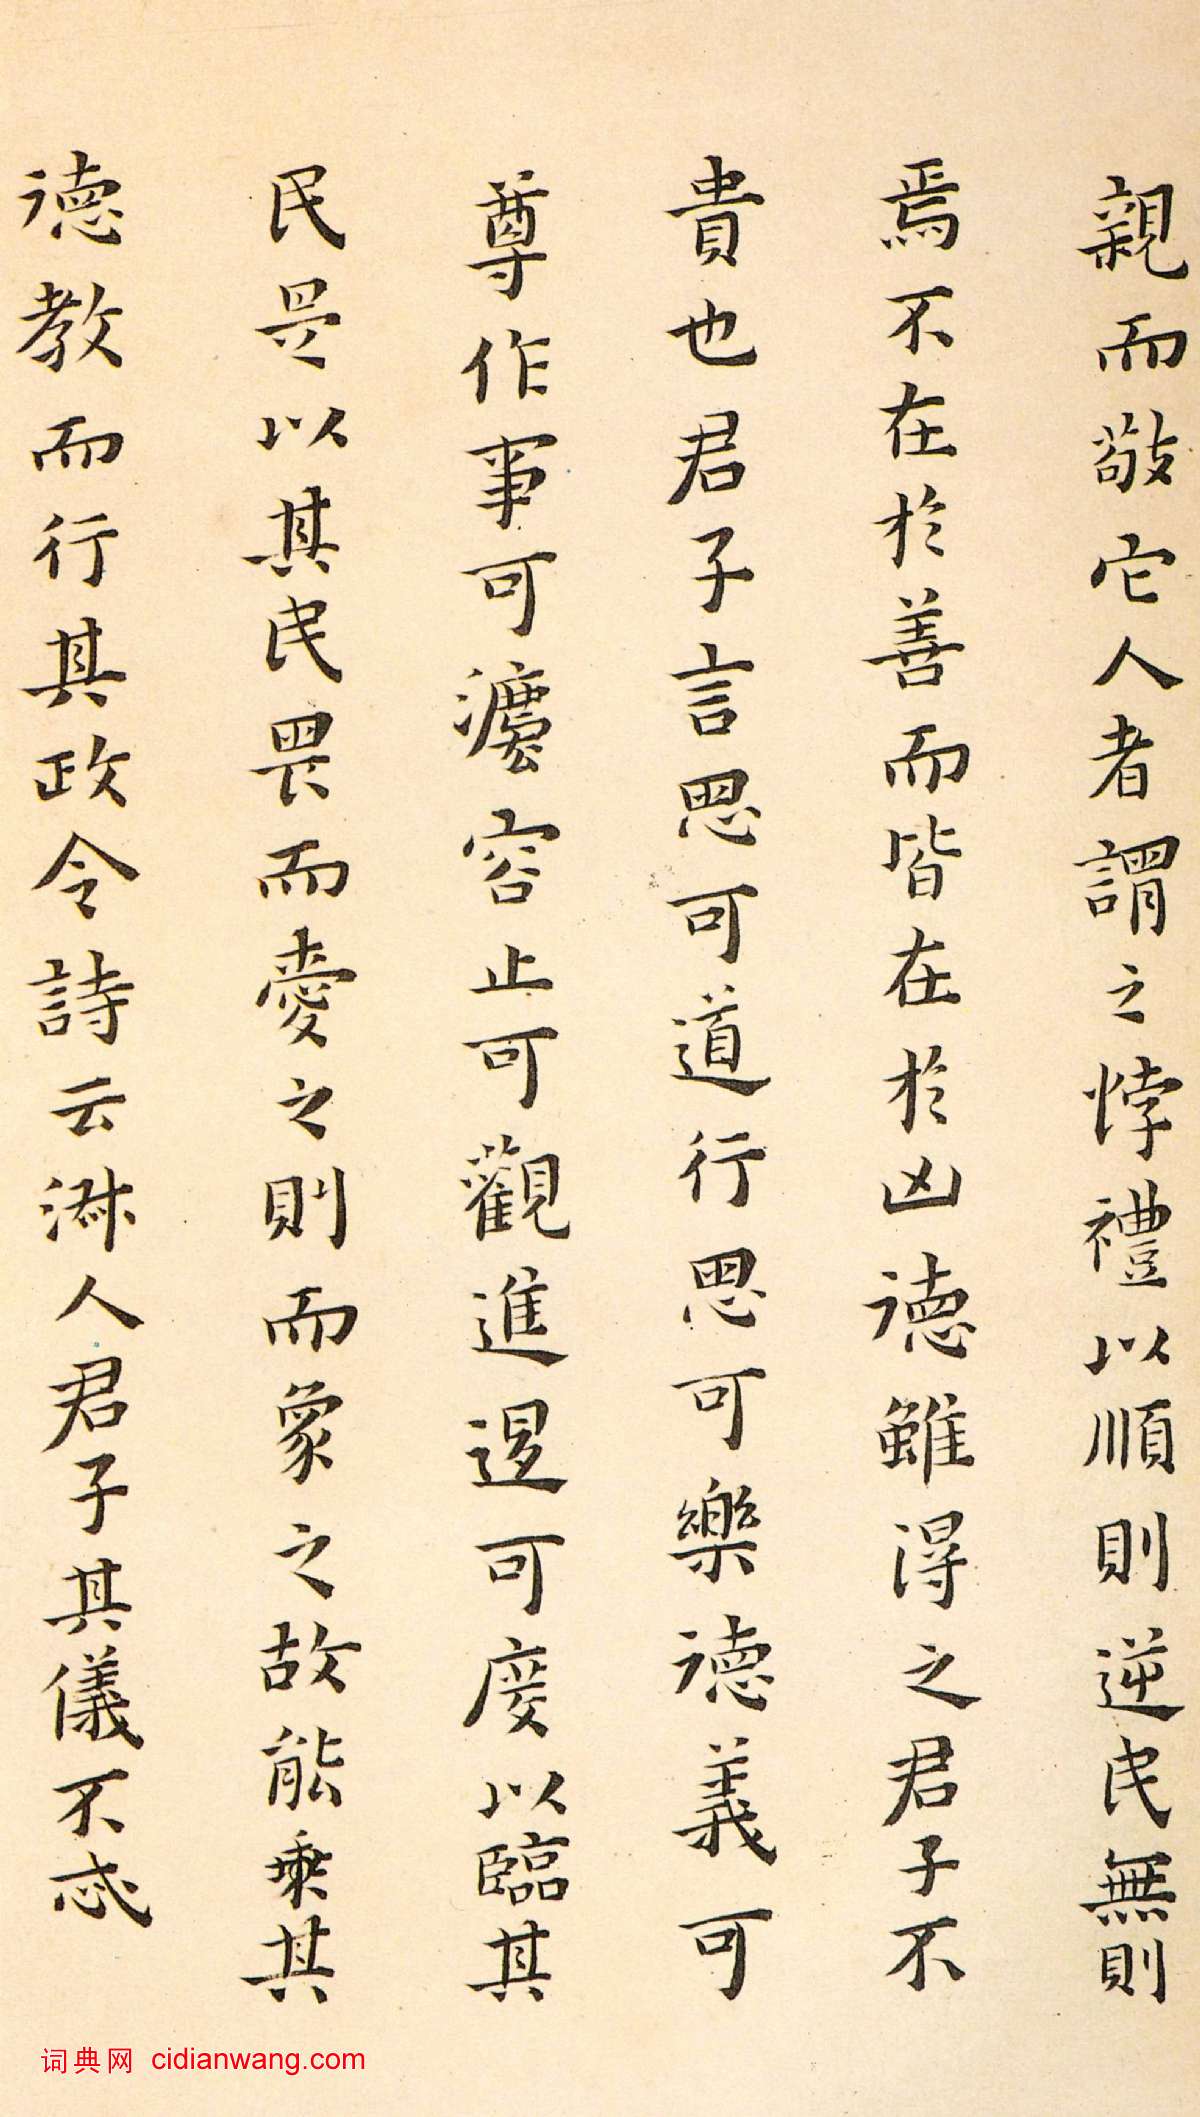 親而敬它人者謂之悖禮以順則逆民無則
焉不在於善而皆在於凶德雖得之君子不
貴也君子言思可道行思可樂德義可
尊作事可灋容止可觀進退可度以臨其
民是以其民畏而愛之則而象之故能乘其
德教而行其政令詩云淋人君子其儀不忒
词典网 cidianwang.com